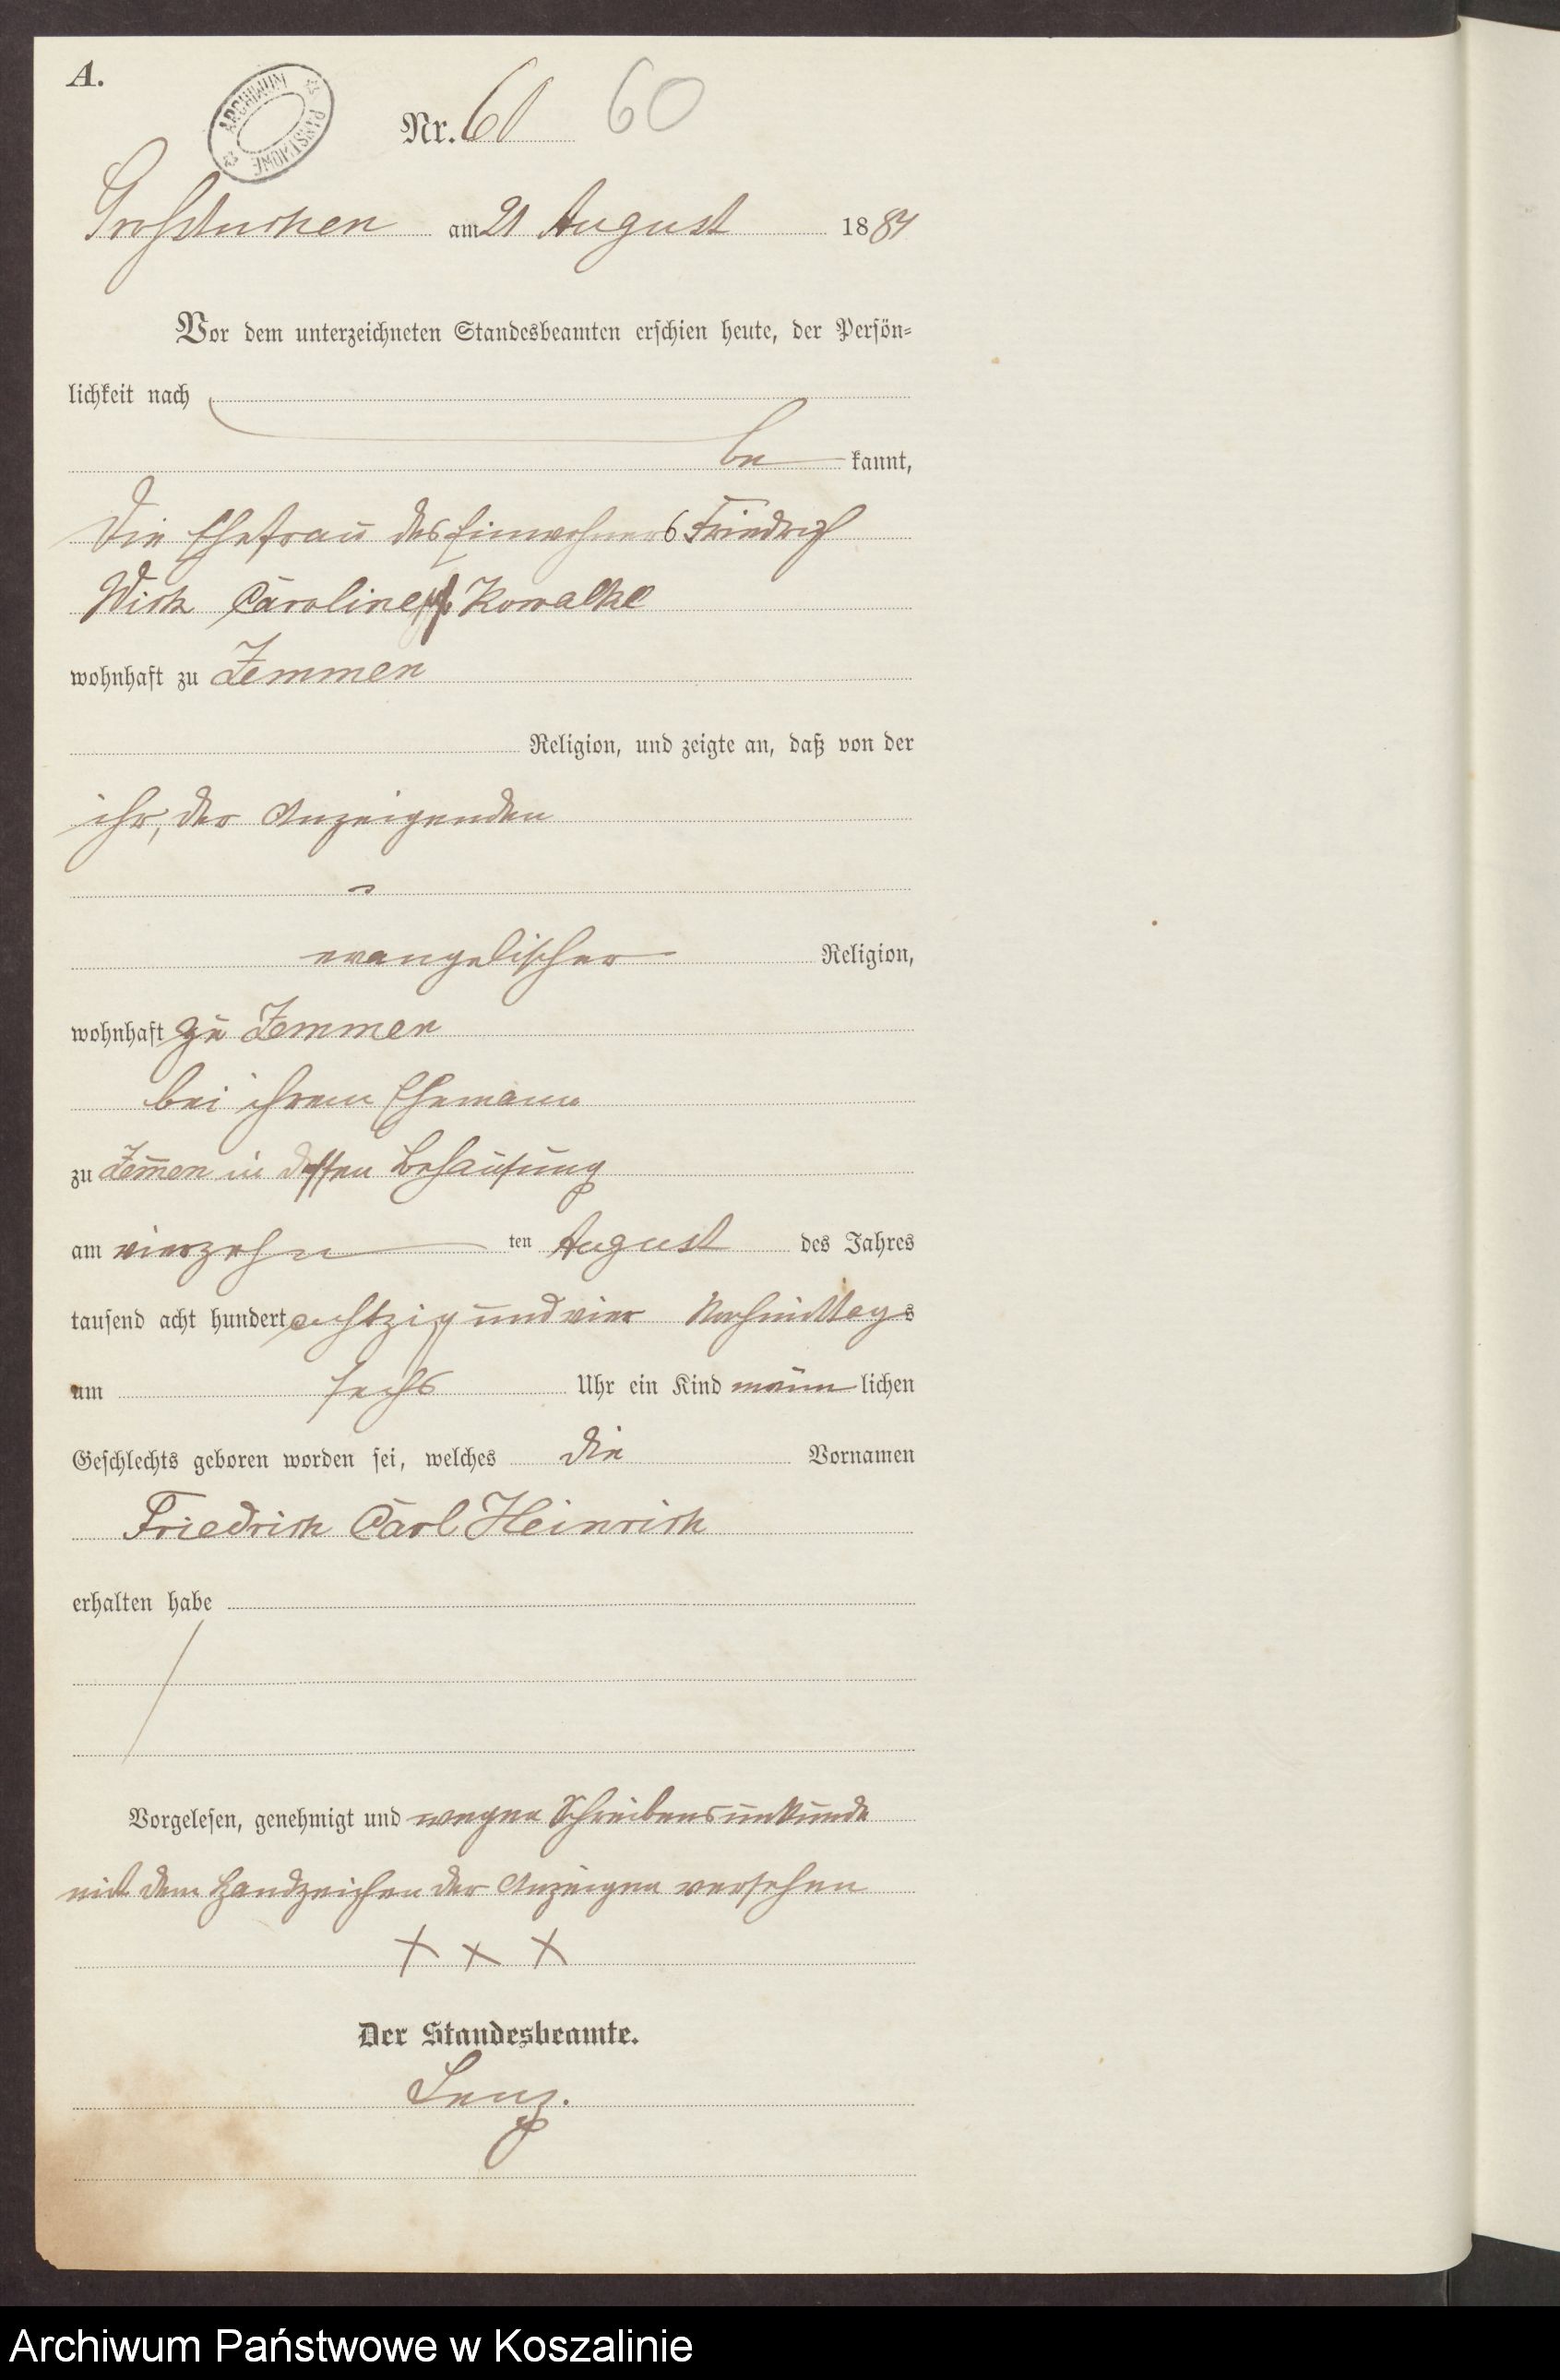 A.
ARCHIWUM PAŃSTWOWE
Nr. 60 60
Großtuchen am 21 August 1884
Vor dem unterzeichneten Standesbeamten erschien heute, der Persön=
lichkeit nach
be kannt,
die Ehefrau des Einwohners Friedrich
Wick Caroline geb. Kowalke
wohnhaft zu Zemmen
Religion, und zeigte an, daß von der
ihr, der Anzeigenden
evangelischer Religion,
wohnhaft zu Zemmen
bei ihrem Ehemann
zu Zem̄en in dessen Behausung
am vierzehn ten August des Jahres
tausend acht hundert achtzig und vier Nachmittags
um sechs Uhr ein Kind männ lichen
Geschlechts geboren worden sei, welches die Vornamen
Friedrich Carl Heinrich
erhalten habe
Vorgelesen, genehmigt und wegen Schreibensunkunde
mit dem Handzeichen der Anzeigen versehen
+ + +
Der Standesbeamte.
Lenz.
Archiwum Państwowe w Koszalinie